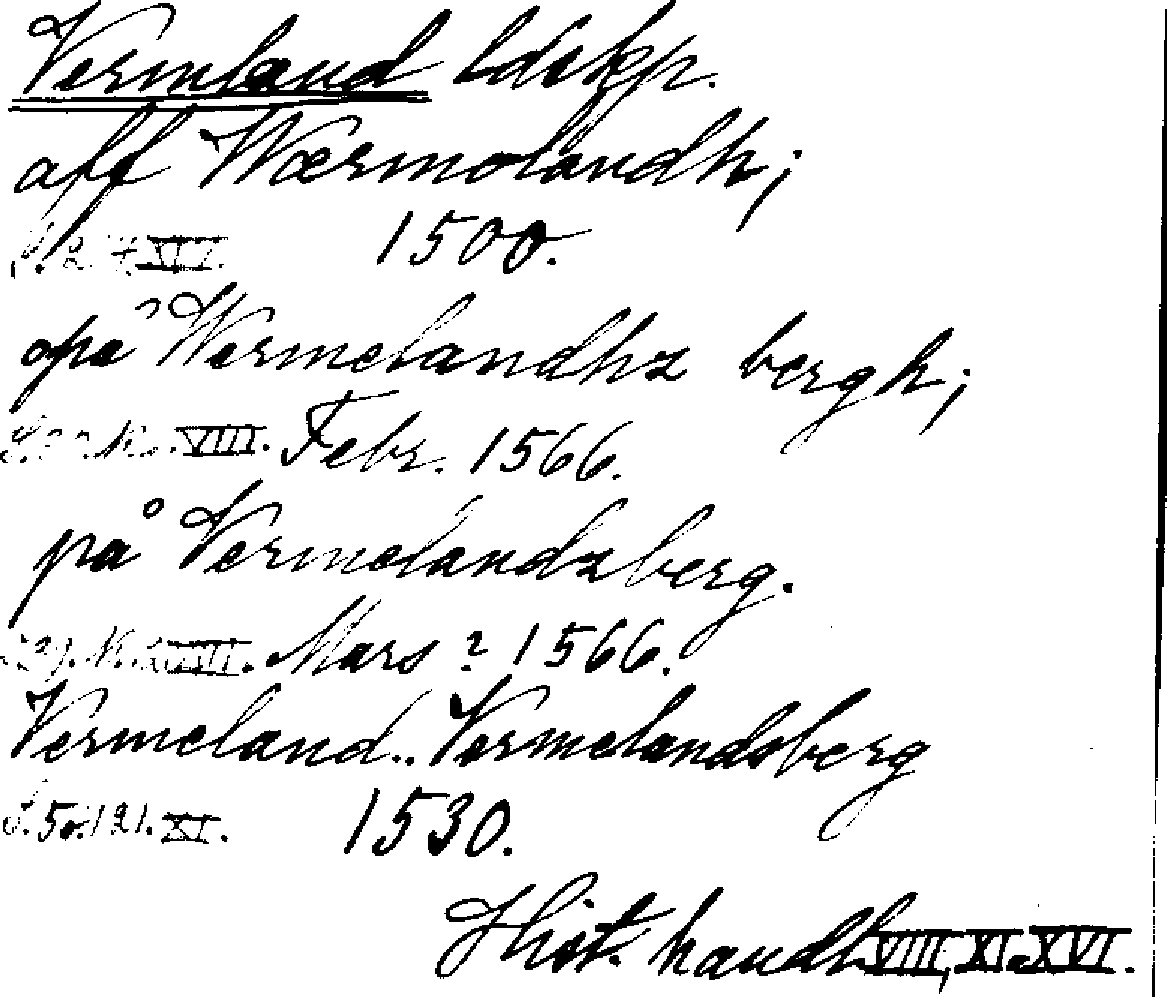 Vermland ldskp.
aff Wærmolandh;
XVI. 1500.
opå Wermelandhz bergh;
VIII. Febr. 1566.
på Vermelandzberg.
VIII. Mars ? 1566.
Vermeland.. Vermelandsberg
S. 5 o. 121. XI. 1530.
Hist. handl. VIII, XI o. XVI.